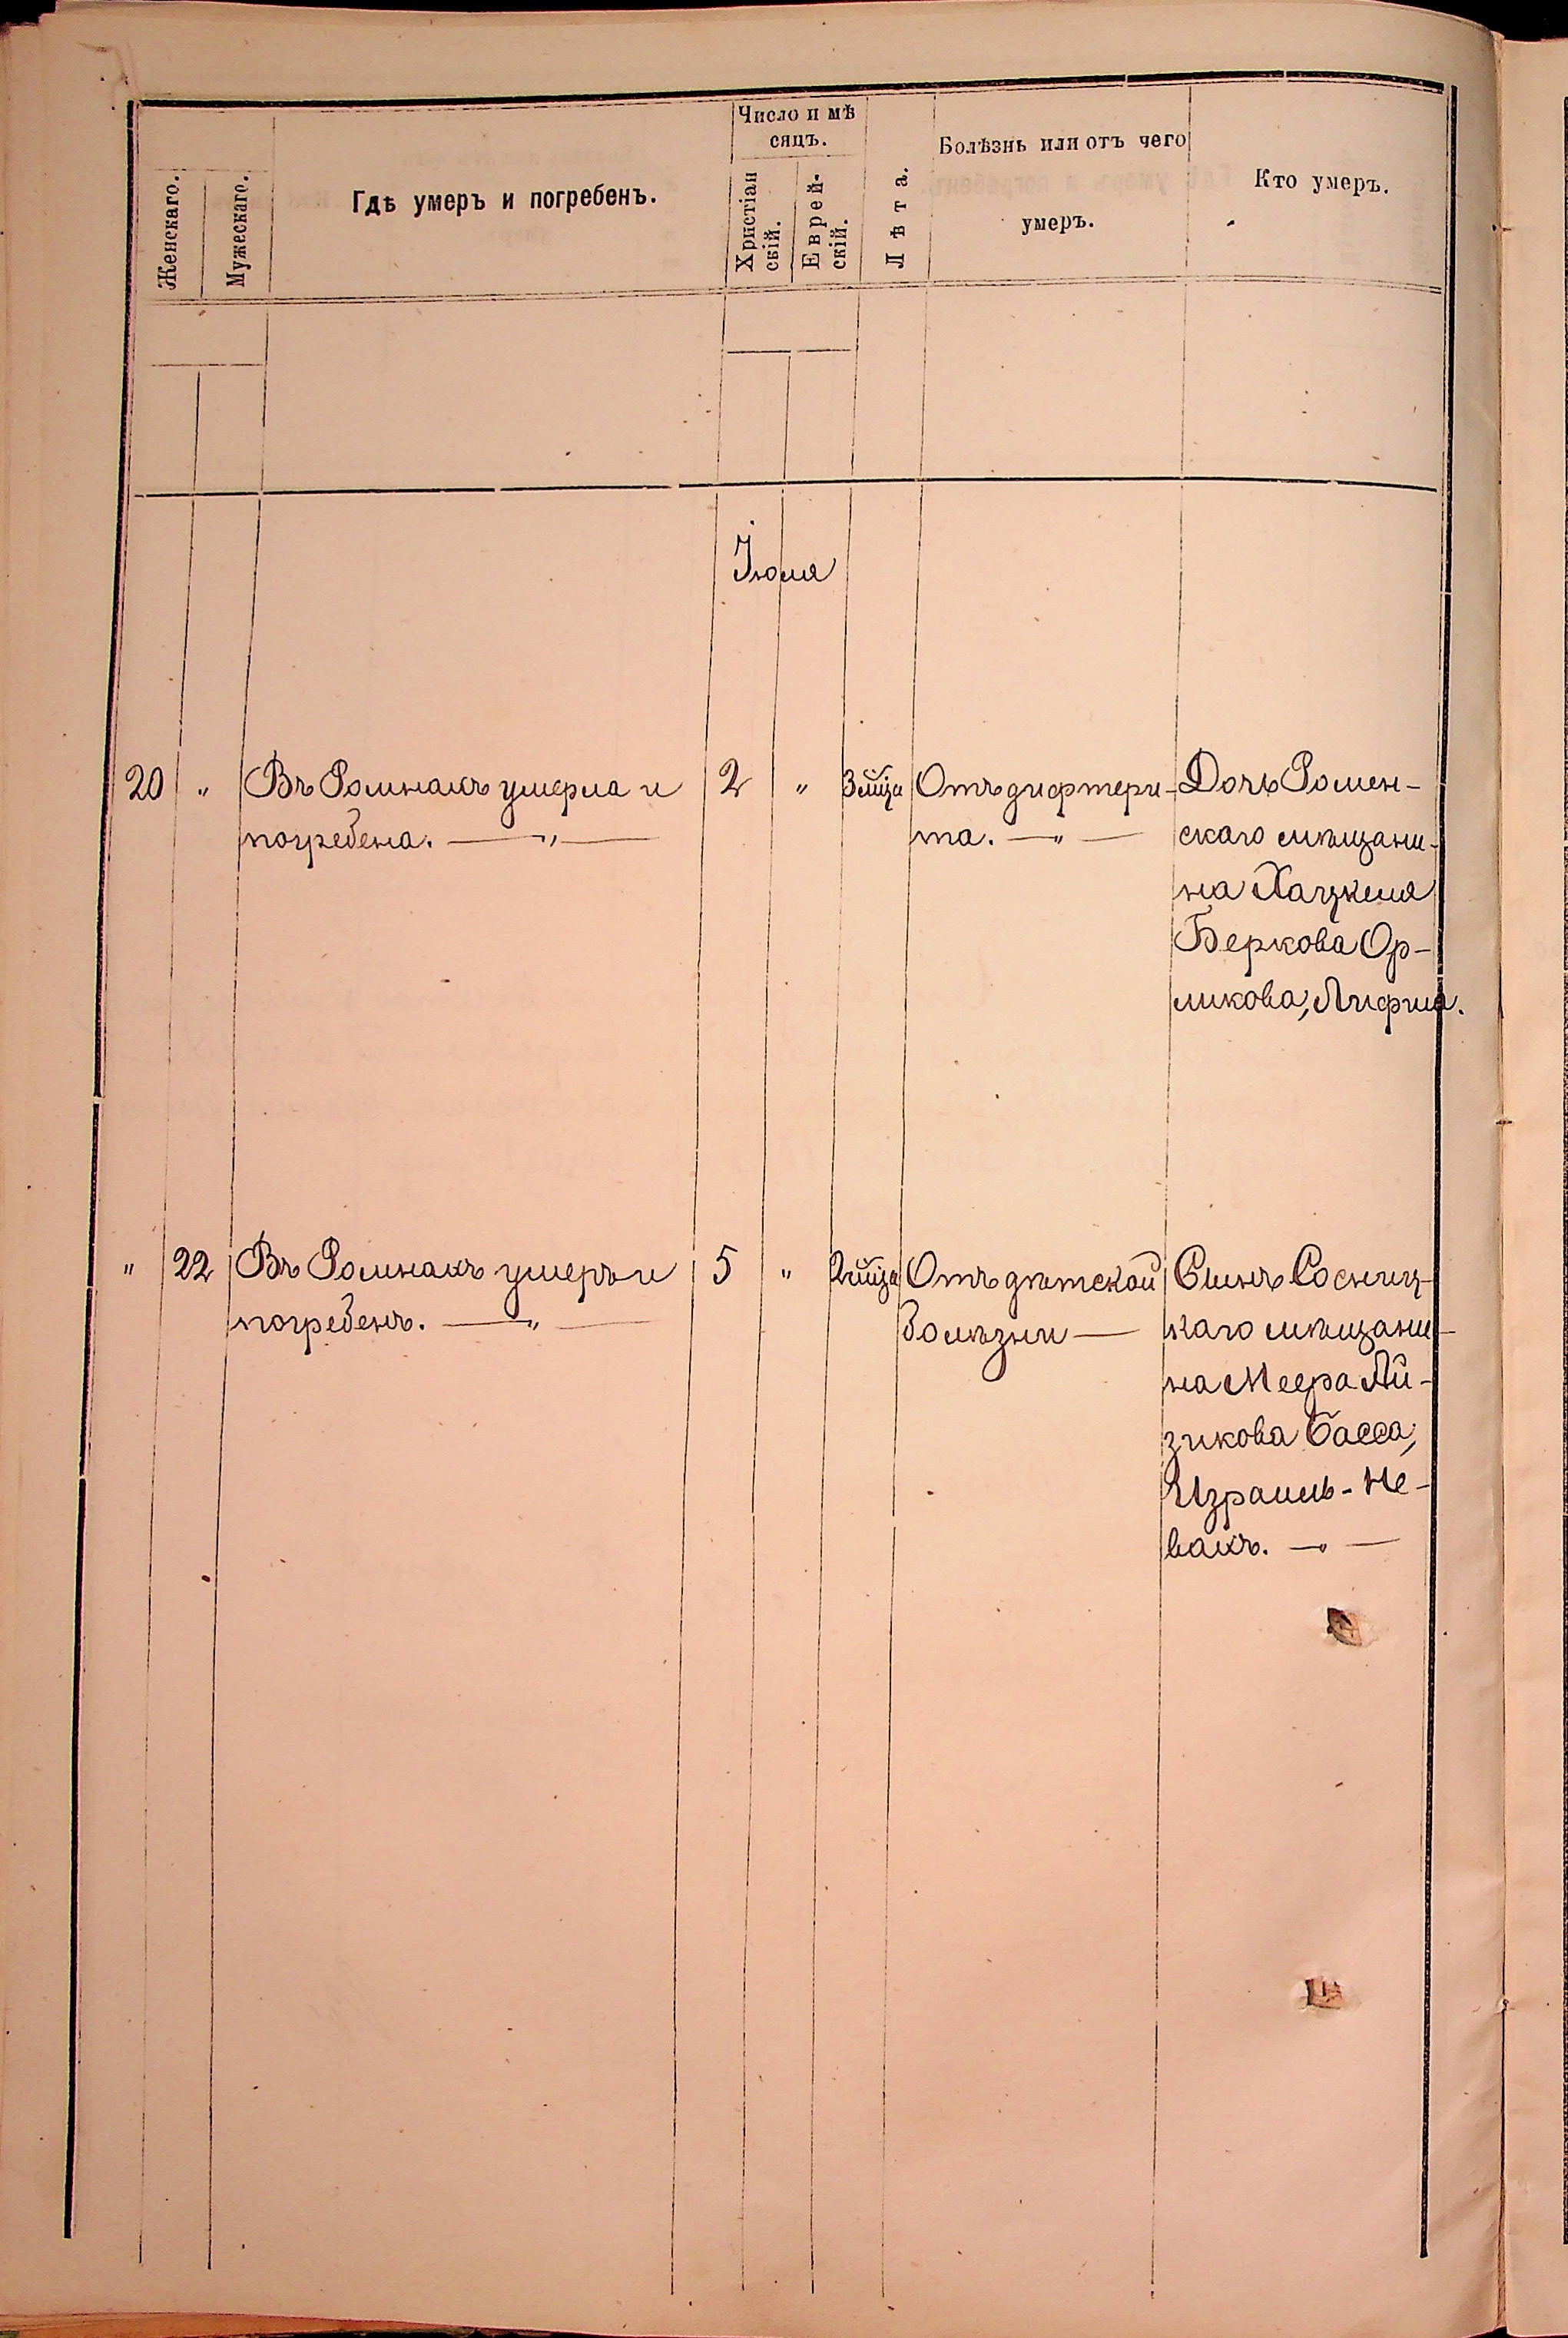 Женскаго.
Мужескаго.
Гдѣ умеръ и погребенъ.
Число и мѣ
сяцъ.
Христіан
скій.
Еврей-
скій.
Лѣта.
Болѣзнь или отъ чего
умеръ.
Кто умеръ.
Іюля
20 " Въ Ромнахъ умерла и 2 " 3 мѣца Отъ дифтери- Дочь Ромен-
погребена. — " — та. — " — скаго мѣщани-
на Хацкеля
Беркова Ор-
ликова,
" 22 Въ Ромнахъ умеръ и 5 " 2 мѣца Отъ дѣтской Сынъ Сосниц-
погребенъ. — " — болѣзни — каго мѣщани-
на Меера Ай-
зикова Басса,
Израиль-Не-
вахъ. — " —